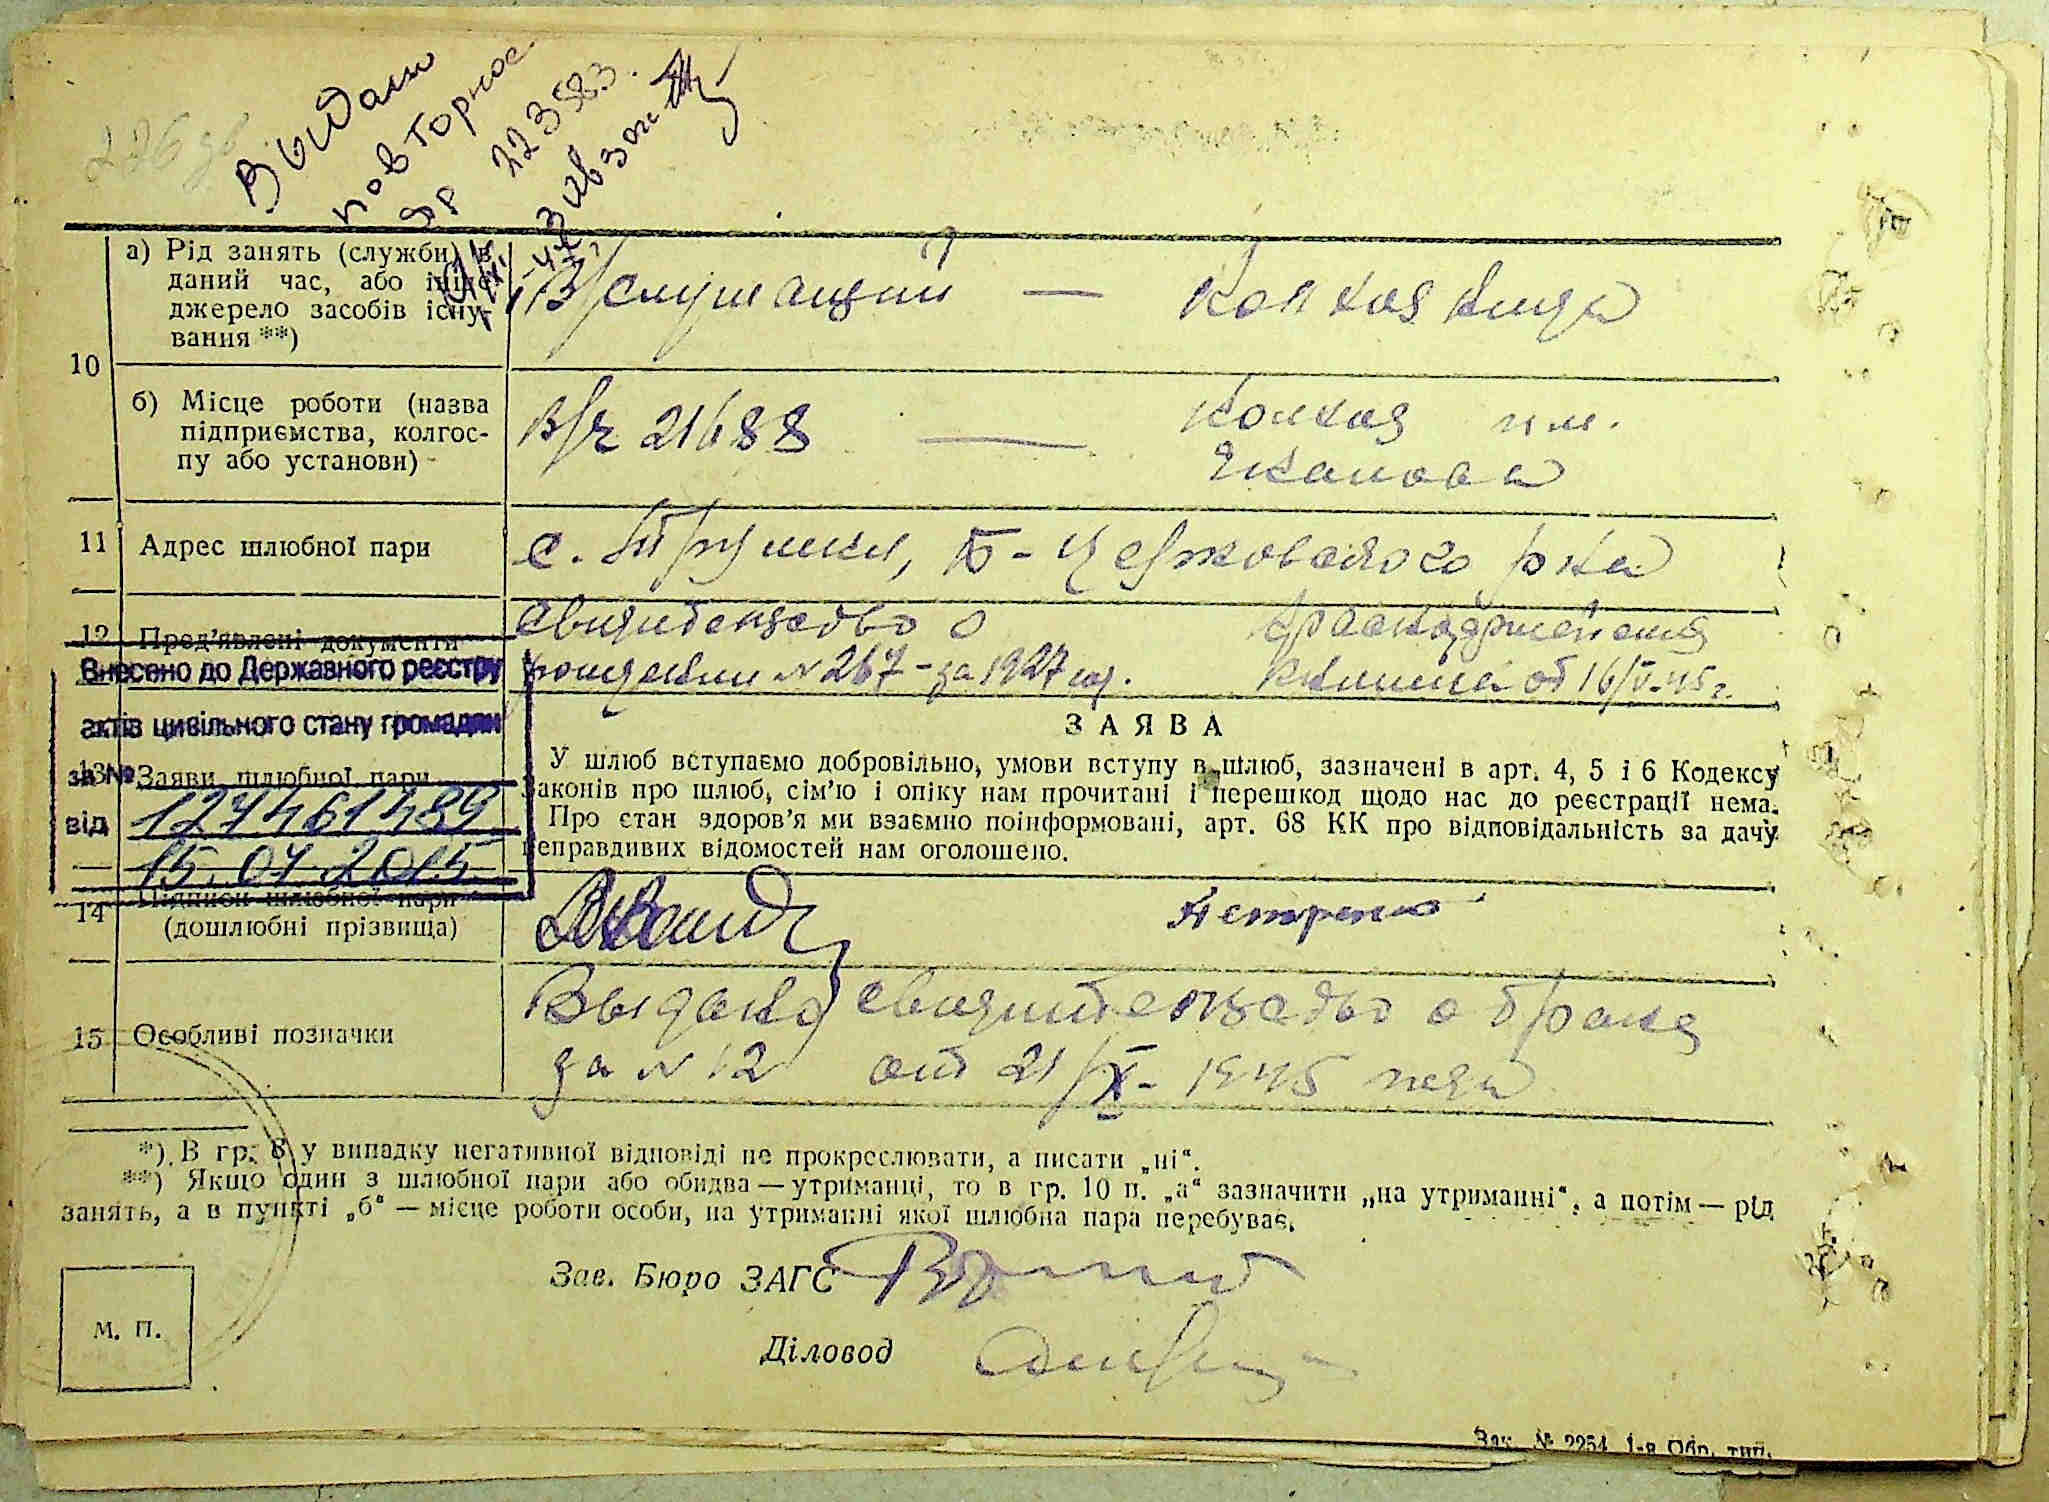 Выдано
повторное
ЯР 223583.
а) Рід занять (службн) в
даний час, або інше
джерело засобів існу-
вання **)
В/служащий — Колхозница
10
б) Місце роботи (назва
підприємства, колгос-
пу або установи)
В/ч 21688 — Колхоз им.
Чкалова
11 Адрес шлюбної пари
с. Трушки, Б-Церковского р-на
12 Пред'явлені документи
Свидетельство о
рождении № 267 - за 1927 год.
Красноармейская
книжка от 16/V-45 г.
Внесено до Державного реєстру
актів цивільного стану громадян
за №
127461489
від
15.07.2015
13 Заяви шлюбної пари
ЗАЯВА
У шлюб вступаємо добровільно, умови вступу в шлюб, зазначені в арт. 4, 5 і 6 Кодексу
Законів про шлюб, сім'ю і опіку нам прочитані і перешкод щодо нас до реєстрації нема.
Про стан здоров'я ми взаємно поінформовані, арт. 68 КК про відповідальність за дачу
неправдивих відомостей нам оголошено.
14 Підписи шлюбної пари
(дошлюбні прізвища)
Петренко
15 Особливі позначки
Выдано свидетельство о браке
за № 12 от 21/X- 1945 года
*) В гр. 8 у випадку негативної відповіді не прокреслювати, а писати „ні“.
**) Якщо один з шлюбної пари або обидва — утриманці, то в гр. 10 п. „а“ зазначити „на утриманні“, а потім — рід
занять, а в пункті „б“ — місце роботи особи, на утриманні якої шлюбна пара перебуває.
Зав. Бюро ЗАГС
М. П.
Діловод
Зак. № 2254 1-я Обр. тип.